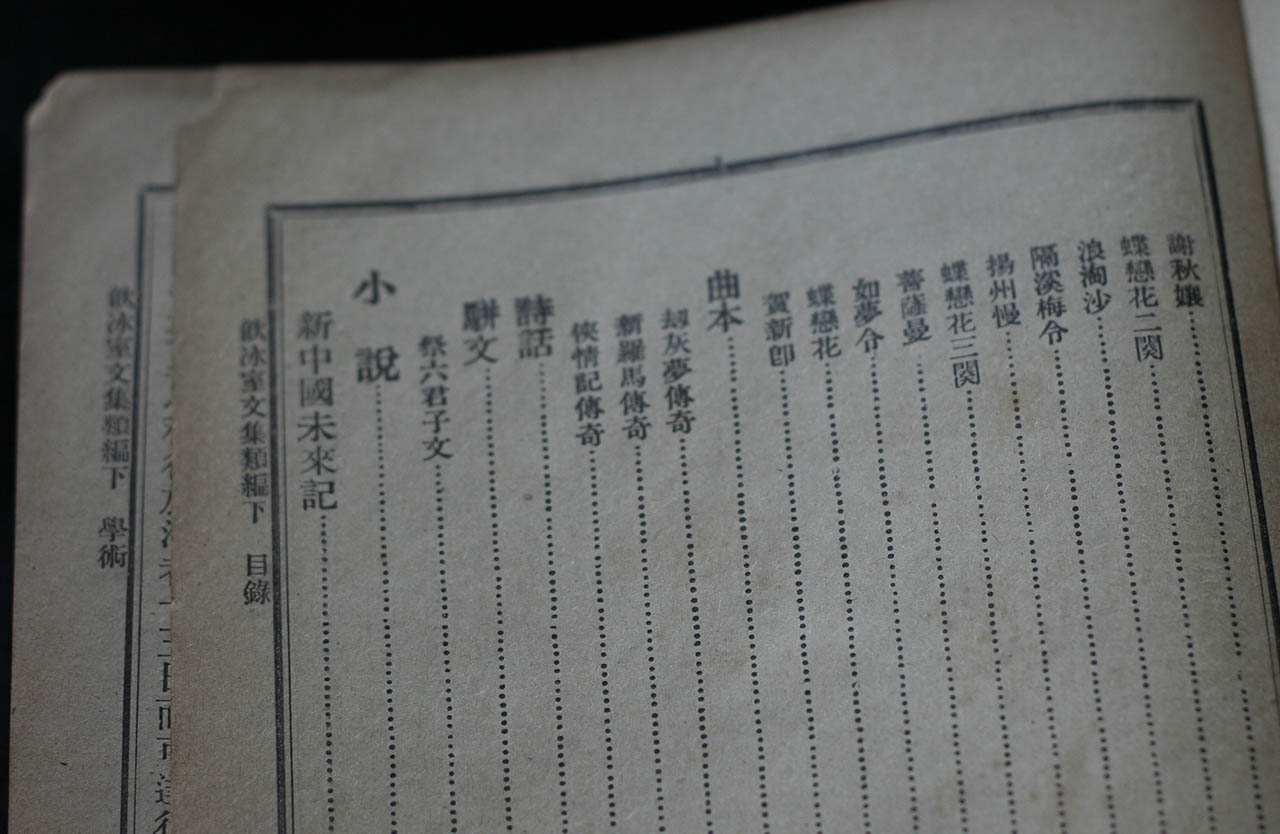 謝秋孃
蝶戀花二闋
浪淘沙
隔溪梅令
揚州慢
蝶戀花三闋
菩薩曼
如夢令
蝶戀花
賀新郎
曲本
刼灰夢傳奇
新羅馬傳奇
俠情記傳奇
詩話
駢文
祭六君子文
小說
新中國未來記
飲冰室文集類編下 目錄
飲冰室文集類編下 學術